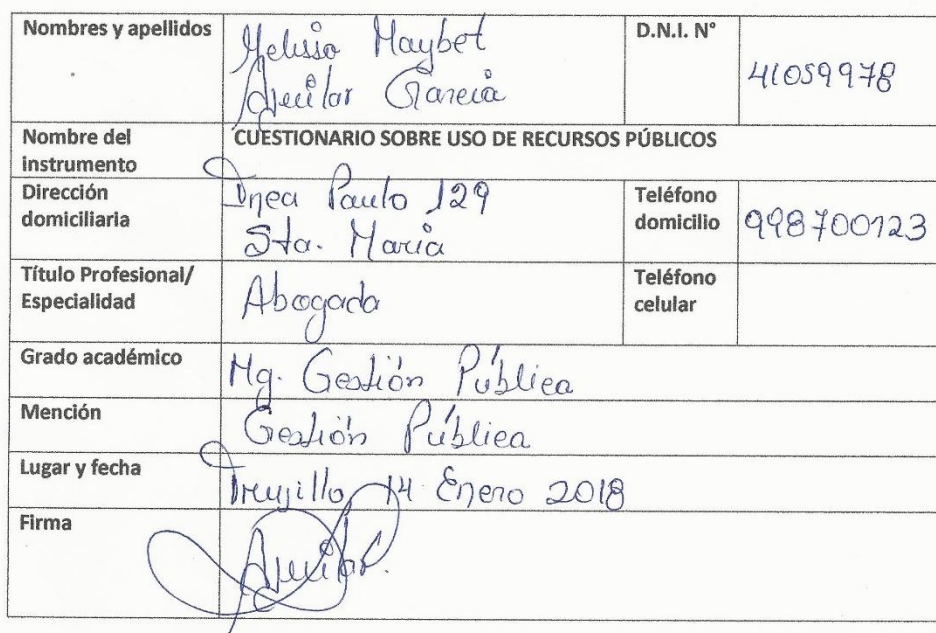 Nombres y apellidos
Melissa Maybet
Aguilar Garcia
D.N.I. N°
41059978
Nombre del
instrumento
CUESTIONARIO SOBRE USO DE RECURSOS PÚBLICOS
Dirección
domiciliaria
Paulo 129
Sta. Maria
Teléfono
domicilio
998700123
Título Profesional/
Especialidad
Abogada
Teléfono
celular
Grado académico
Mg. Gestión Pública
Mención
Gestión Pública
Lugar y fecha
Trujillo, 14 Enero 2018
Firma
Aguilar